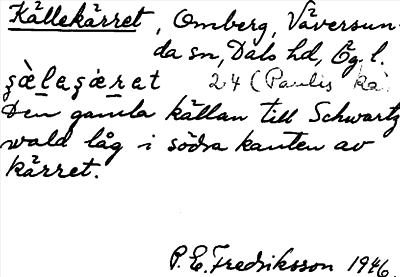 Källekärret, Omberg, Väversun-
da sn, Dals hd, Ög. l.
ʂàlaʂàrat 24 (Paulis kä.
Den gamla källan till Schwartz
wald låg i södra kanten av
kärret.
P. E. Fredriksson 1946.